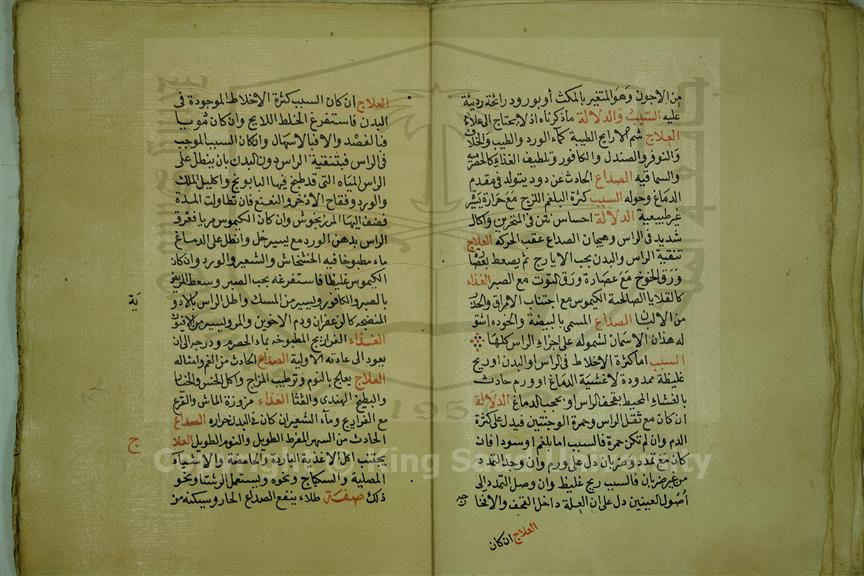 من الاجون وهو المتغير بالمكث أو بورود رائحة رديئة
عليه السبب والدلالة ماذكرناه اذ لا يحتاج الى علاج
العلاج شم الارايح الطيبة كماء الورد والطيب والخلاف
والنوفر والصندل والكافور وتلطيف الغذاء كالحصرميه
والسماقيه الصداع الحادث عن دود يتولد في مقدم
الدماغ وحوله السبب كثرة البلغم اللزج مع حرارة
غير طبيعية الدلالة احساس نتن في المنخرين واكال
شديد في الراس وهيجان الصداع عقب الحركه العلاج
تنقية الراس والبدن بحب الايارج ثم يصعط بعصارة
ورق الخوخ مع عصارة ورق التوت مع الصبر الغذاء
كالقلايا الصالحة الكيموس مع اجتناب الامراق والحذر
من الالبان الصداع المسمى بالبيضة والخوده اشتق
له هذان الاسمان لشموله على اجزاء الراس كلها
السبب اما كثرة الاخلاط في الراس او البدن او ريح
غليظة ممددة لاغشية الدماغ او ورم حادث
بالغشاء المحيط بقحف الراس او بحجب الدماغ الدلالة
ان كان مع ثقل الراس وحمرة الوجنتين فيدل على كثرة
الدم وان لم تكن حمرة فالسبب اما بلغم او سودا فان
كان مع تمدد وضربان دل على ورم وان وجد التمدد
من غير ضربان فالسبب ريح غليظ وان وصل التمدد الى
أصول العينين دل على ان العلة داخل القحف والا فخارجه
العلاج ان كان
العلاج ان كان السبب كثرة الاخلاط الموجودة في
البدن فاستفرغ الخلط اللايح وان كان دمويا
فبالفصد والا فبالاسهال وان كان السبب الموجب
في الراس فبتنقية الراس دون البدن بان ينطل على
الراس المياه التي قد طبخ فيها البابونج واكليل الملك
والورد وفقاح الاذخر والنعنع فان تطاولت المدة
فضف اليها المرزنجوش وان كان الكيموس مريا فغرق
الراس بدهن الورد مع يسير خل وانطل على الدماغ
ماء مطبوخا فيه الخشخاش والشعير والورد وان كان
الكيموس غليظا فاستفرغه بحب الصبر وسعط المريض
بالصبر والكافور ويسير من المسك واطل الراس بالادوية
المنضجه كالزعفران ودم الاخوين والمر ويسير من الافيون
يَة
الغذاء الفراريج المطبوخه بماء الحصرم ودرجه الى ان
يعود الى عادته الاولية الصداع الحادث من الغم وامثاله
العلاج يعالج بالنوم وترطيب المزاج واكل الخس والخيار
والبطيخ الهندي والقثا الغذاء مزورة الماش والقرع
مع الفراريج وماء الشعير ان كان في البدن حراره الصداع
الحادث من السهر المفرط الطويل والنوم الطويل العلاج
ج
يجتنب اكل الاغذية الباردة والحامضة والاشياء
المصلية والسكباج ونحوه ويستعمل الرشتا ونحو
ذلك صفة طلاء ينفع الصداع الحار ويسكنه من
1957
Copyright © King Saud University